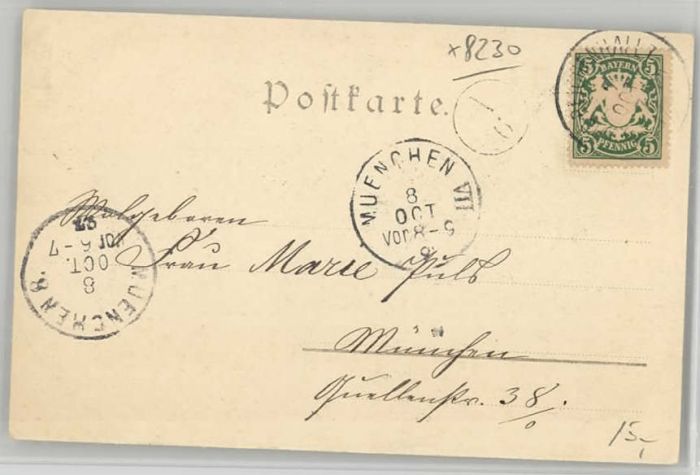 x8230
Postkarte.
5 BAYERN 5
5 PFENNIG 5
MUENCHEN VII
8
OCT
VOR 8-9
Wolgeboren
Frau Marie Puls
MUENCHEN 8.
8
OCT.
VOR 6-7
München
Quellenstr. 38/0
15,-